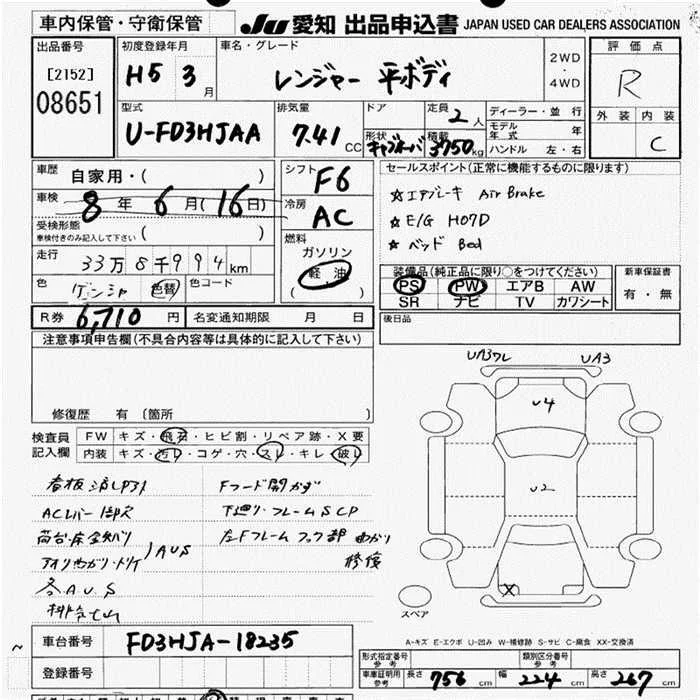 車内保管・守衛保管
JU 愛知 出品申込書 JAPAN USED CAR DEALERS ASSOCIATION
出品番号
[2152]
08651
初度登録年月
H5 3月
車名・グレード
レンジャー 平ボディ
2WD
・
4WD
評価点
R
外装 内装
C
型式
U-FD3HJAA
排気量
7.41 CC
ドア
形状
キャブオーバ
定員
2人
積載
3750kg
ディーラー・並行
モデル年式 年
ハンドル 左・右
車歴
自家用・( )
車検
8年 6月(16日)
受検形態
車検付きのみ記入して下さい ( )
走行
33万8千994km
色
色替
色コード
R券 6,710円
名変通知期限 月 日
シフト
F6
冷房
AC
燃料
ガソリン
軽油
( )
セールスポイント(正常に機能するものに限ります)
☆エアブレーキ Air Brake
☆E/G H07D
☆ベッド Bed
装備品(純正品に限り○をつけてください)
PS PW エアB AW
SR ナビ TV カワシート
新車保証書
有・無
後日品
注意事項申告欄(不具合内容等は具体的に記入して下さい)
修復歴 有 〔箇所 〕
検査員
記入欄
FW キズ・飛石・ヒビ割・リペア跡・X要
内装 キズ・汚レ・コゲ・穴・スレ・キレ・破レ
Fフード開かず
下廻り・フレームSCP
左Fフレーム フック部 曲がり
修復
AUS
UA3
U4
U2
X
スペア
A-キズ E-エクボ U-凹み W-補修跡 S-サビ C-腐食 XX-交換済
車台番号
FD3HJA-18235
登録番号
形式指定番号
参考
類別区分番号
参考
車庫証明用
参考
長さ 756cm
幅 224cm
高さ 267cm